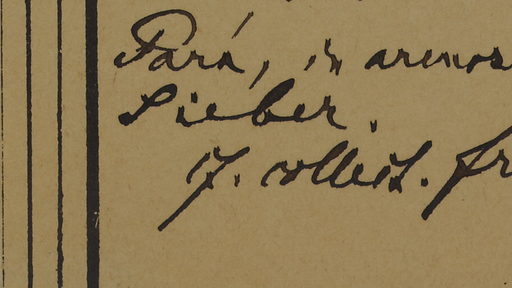 Pará, in arenos
Sieber.
collect. fr